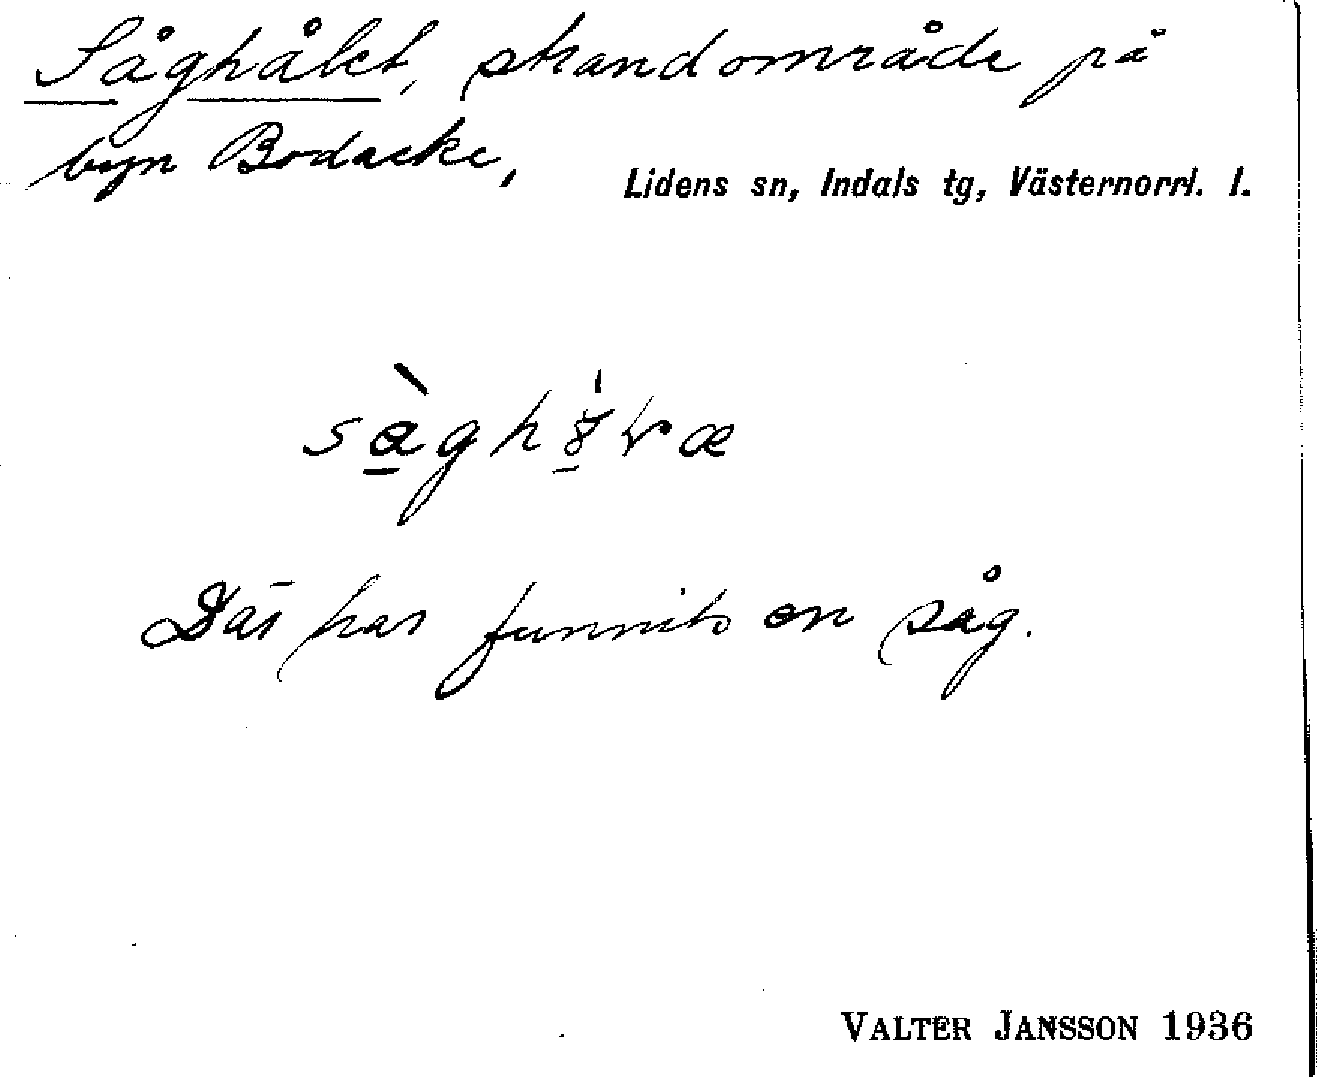 Såghålet, strandområde på
byn Bodacke,
Lidens sn, Indals tg, Västernorrl. l.
Där har funnits en såg.
VALTER JANSSON 1936